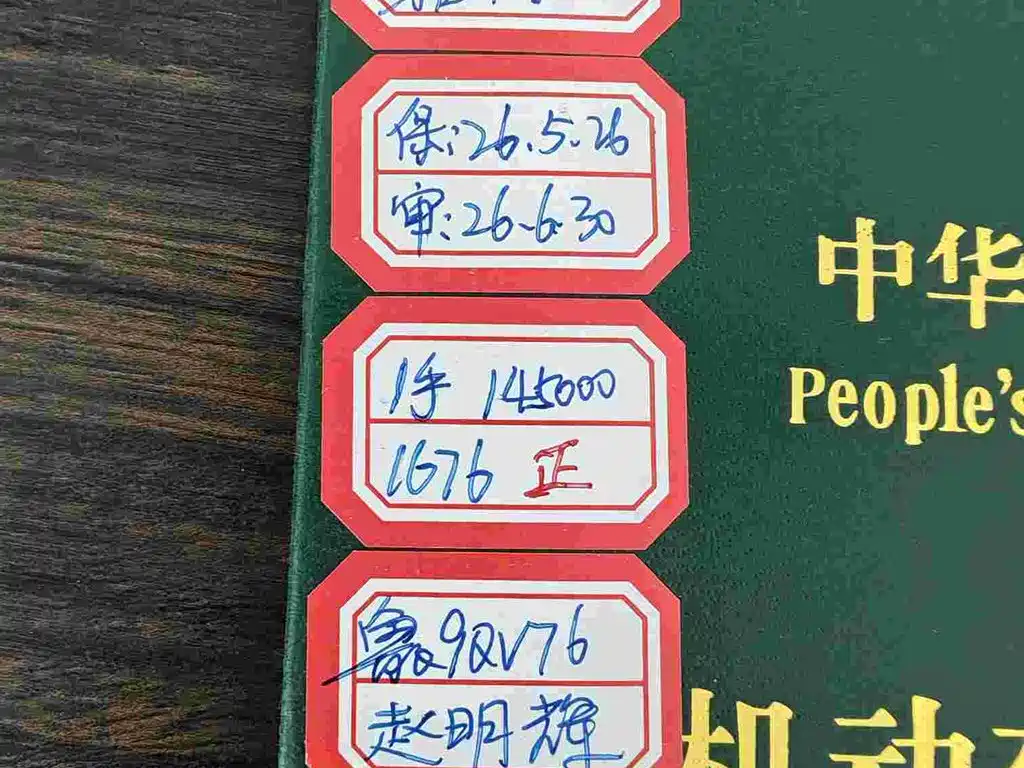 保:26.5.26
审:26.6.30
1手 145000
1G76 正
鲁Q9QV76
赵明辉
中华
People's
机动